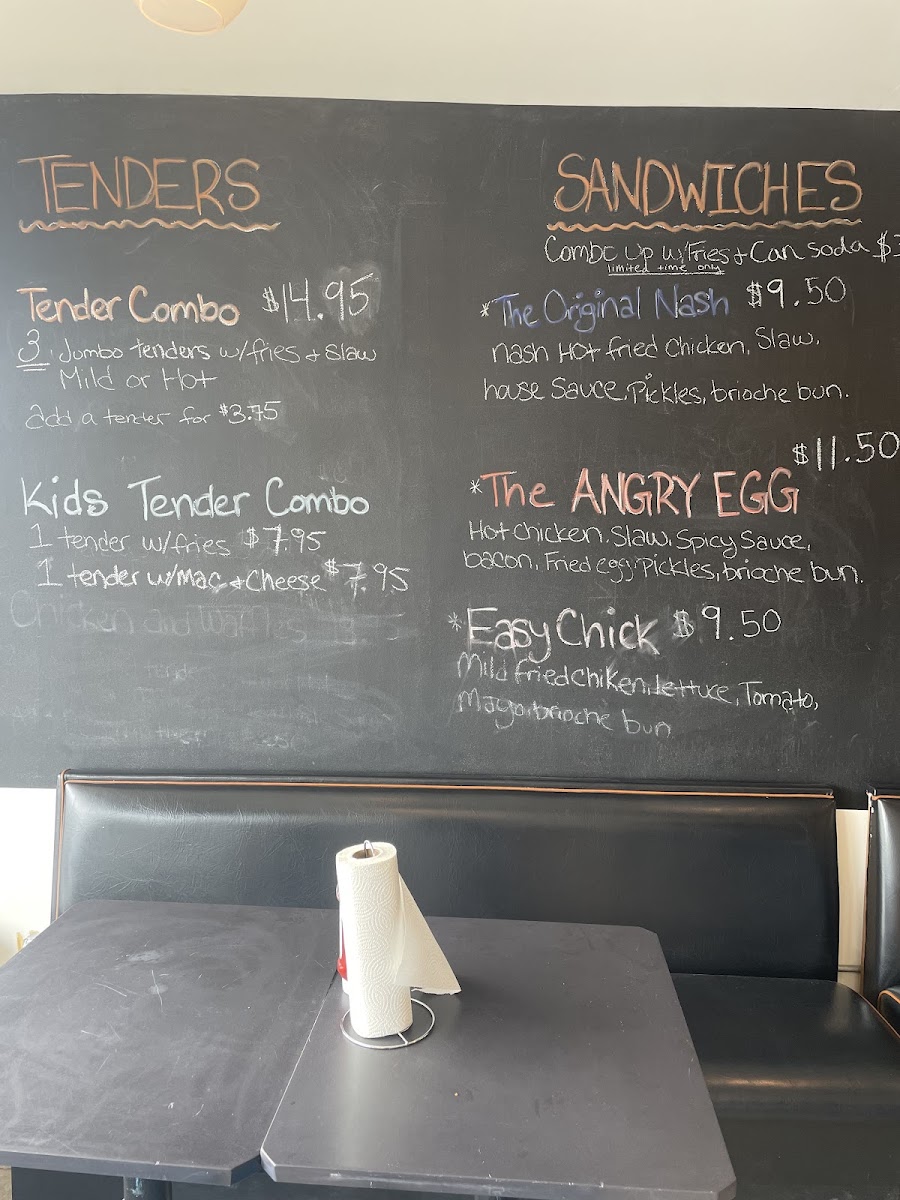 TENDERS
Tender Combo $14.95
3 Jumbo tenders w/fries + Slaw
Mild or Hot
add a tender for $3.75
Kids Tender Combo
1 tender w/fries $7.95
1 tender w/Mac + Cheese $7.95
Chicken and Waffles
SANDWICHES
Combo Up w/Fries + Can soda $3
limited time only
*The Original Nash $9.50
nash Hot fried Chicken, Slaw,
house Sauce, Pickles, brioche bun.
$11.50
*The ANGRY EGG
Hot chicken, Slaw, Spicy Sauce,
bacon, Fried egg, Pickles, brioche bun.
*Easy Chick $9.50
Mild fried chiken, lettuce, Tomato,
Mayo, brioche bun